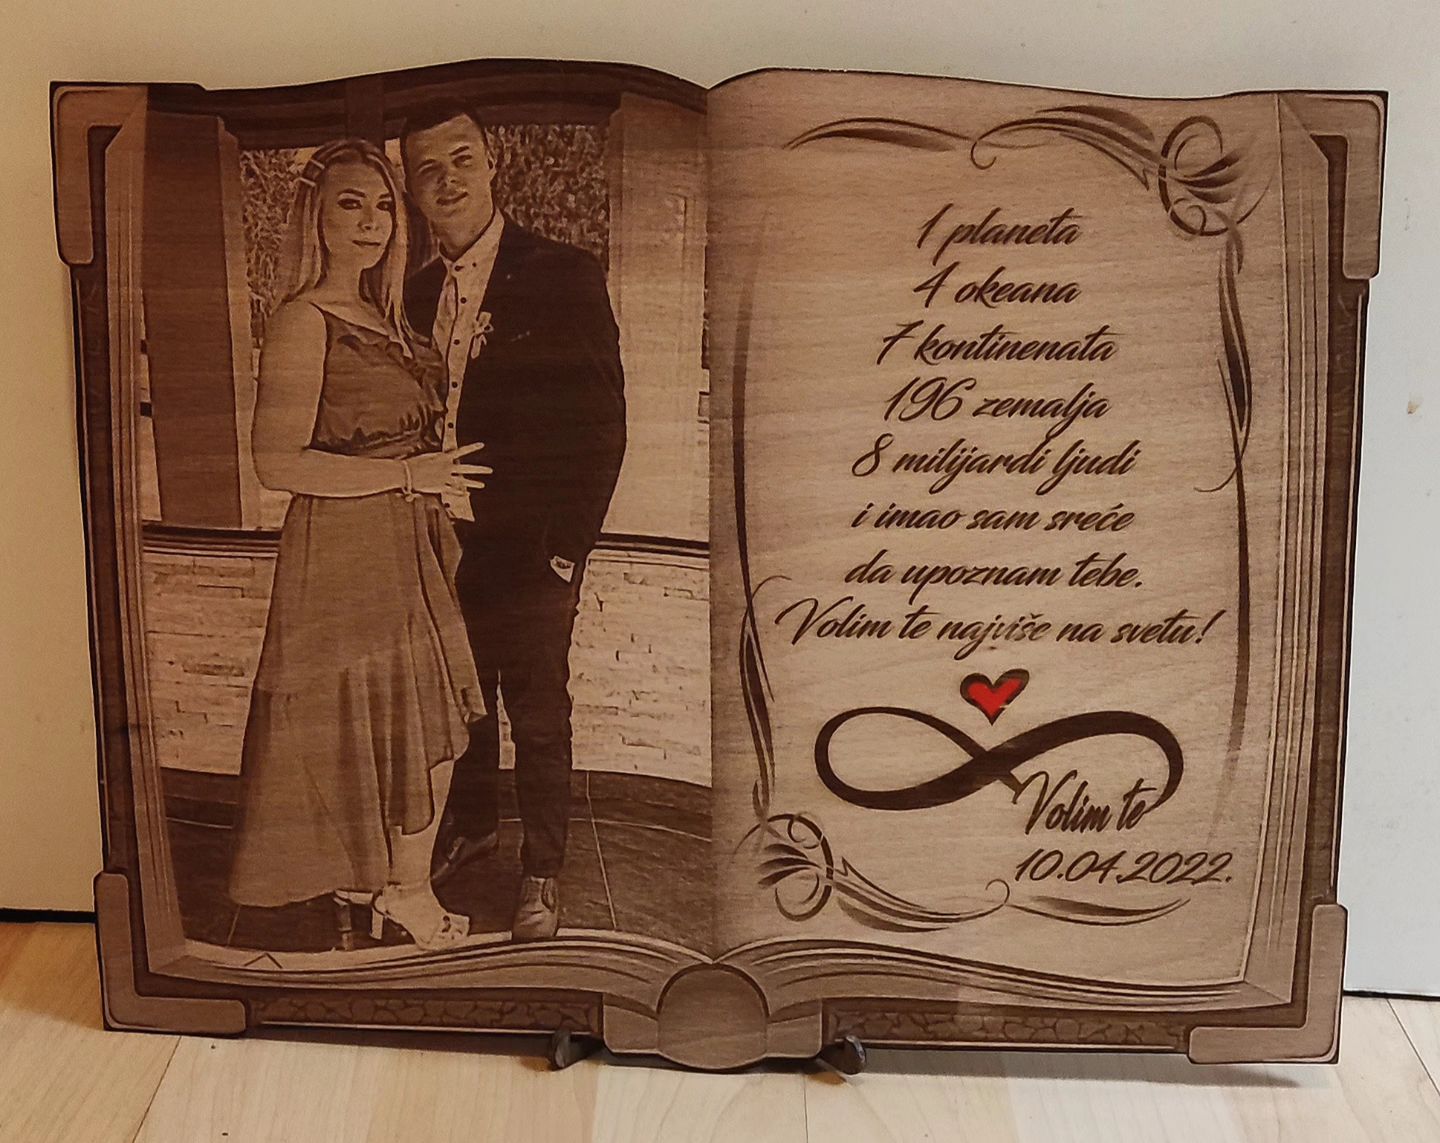 1 planeta
4 okeana
7 kontinenata
196 zemalja
8 milijardi ljudi
i imao sam sreće
da upoznam tebe.
Volim te najviše na svetu!
Volim te
10.04.2022.